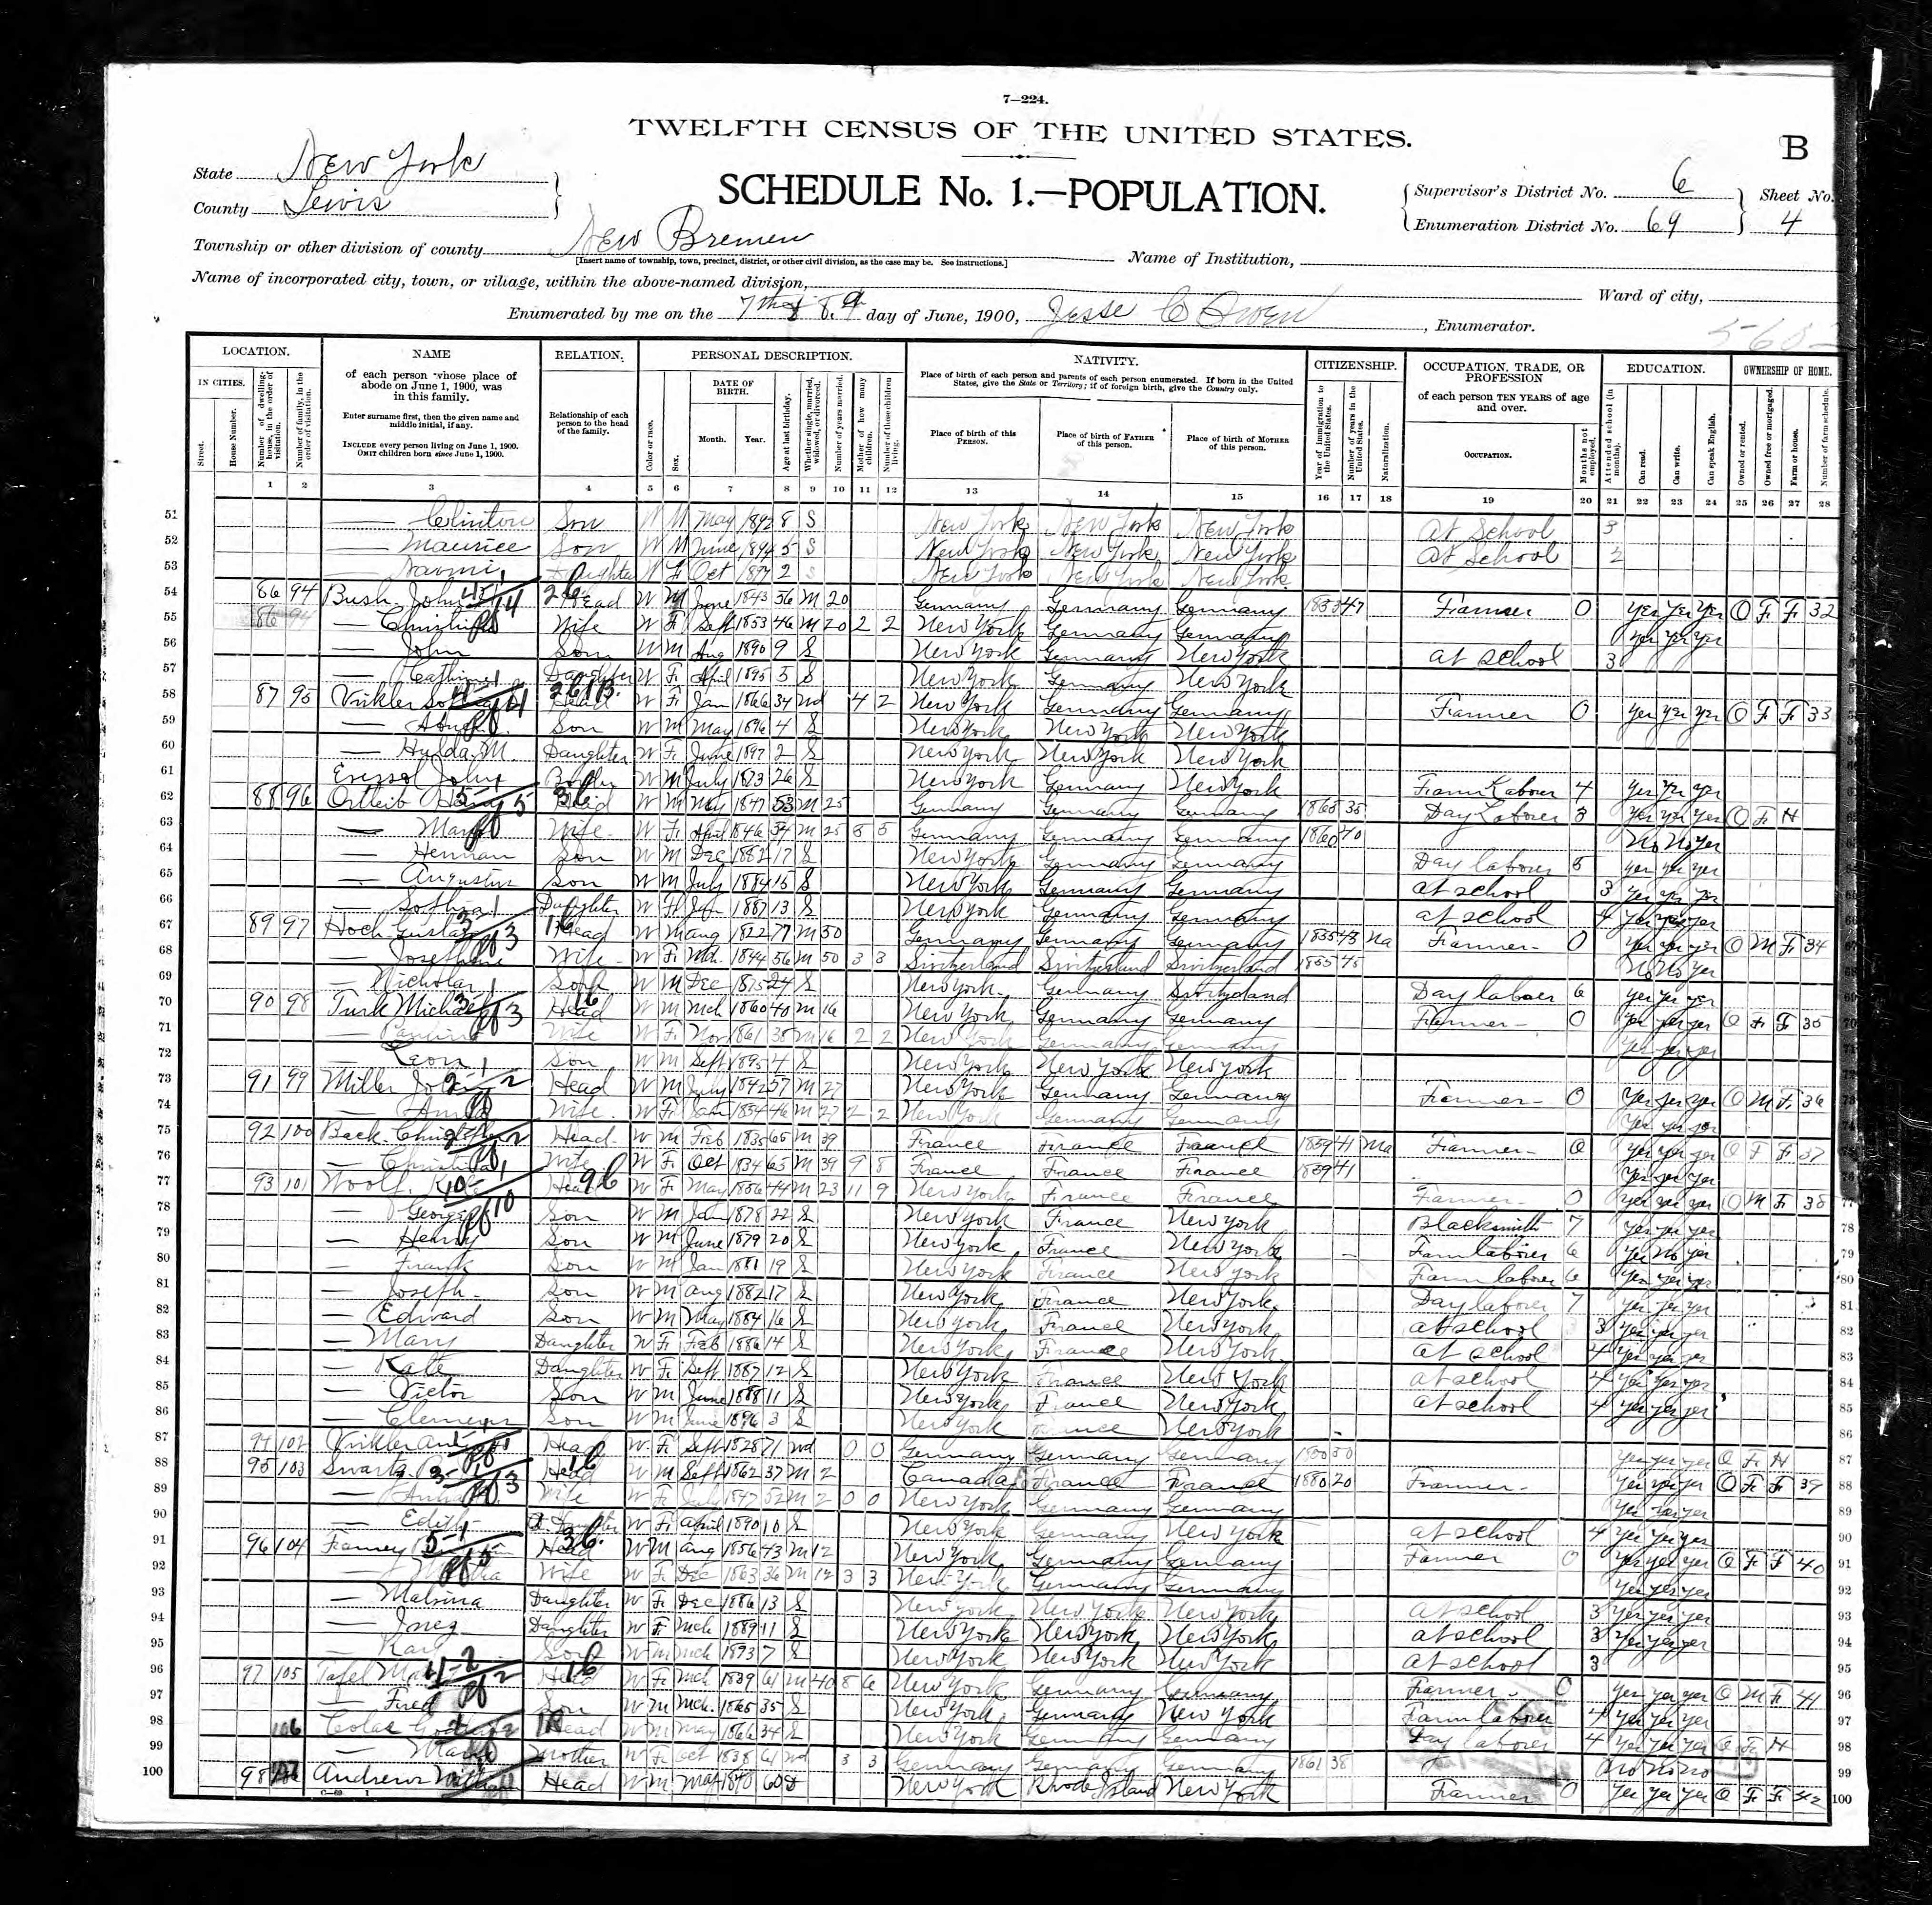 7—224.
TWELFTH CENSUS OF THE UNITED STATES.
B
State New York
County Lewis
SCHEDULE No. 1.—POPULATION.
Supervisor's District No. 6
Sheet No.
Enumeration District No. 64
4
Township or other division of county New Bremen
[Insert name of township, town, precinct, district, or other civil division, as the case may be. See instructions.]
Name of Institution,
Name of incorporated city, town, or village, within the above-named division,
Ward of city,
Enumerated by me on the 7th 8. 9 day of June, 1900, Jesse C Owen, Enumerator.
LOCATION. NAME RELATION. PERSONAL DESCRIPTION. NATIVITY. CITIZENSHIP. OCCUPATION, TRADE, OR PROFESSION EDUCATION. OWNERSHIP OF HOME.
IN CITIES. Street. House Number. Number of dwelling-house, in the order of visitation. Number of family, in the order of visitation.
of each person whose place of abode on June 1, 1900, was in this family.
Enter surname first, then the given name and middle initial, if any.
INCLUDE every person living on June 1, 1900. OMIT children born since June 1, 1900.
Relationship of each person to the head of the family.
Color or race. Sex. DATE OF BIRTH. Month. Year. Age at last birthday. Whether single, married, widowed, or divorced. Number of years married. Mother of how many children. Number of these children living.
Place of birth of each person and parents of each person enumerated. If born in the United States, give the State or Territory; if of foreign birth, give the Country only.
Place of birth of this PERSON. Place of birth of FATHER of this person. Place of birth of MOTHER of this person.
Year of immigration to the United States. Number of years in the United States. Naturalization.
of each person TEN YEARS of age and over.
OCCUPATION. Months not employed.
Attended school (in months). Can read. Can write. Can speak English.
Owned or rented. Owned free or mortgaged. Farm or house. Number of farm schedule.
1 2 3 4 5 6 7 8 9 10 11 12 13 14 15 16 17 18 19 20 21 22 23 24 25 26 27 28
51 — Clinton Son W M May 1892 8 S New York New York New York At School 3
52 — Maurice Son W M June 1894 5 S New York New York New York At School 2
53 — Naomi Daughter W F Oct 1897 2 S New York New York New York
54 86 94 Bush John Head W M June 1843 56 M 20 Germany Germany Germany 1853 47 Farmer 0 yes yes yes O F F 32
55 86 94 — Wife W F Sept 1853 46 M 20 2 2 New York Germany Germany yes yes yes
56 — John Son W M Aug 1890 9 S New York Germany New York At School 3
57 — Daughter W F April 1895 5 S New York Germany New York
58 87 95 Virkler Head W F Jan 1866 34 wd 4 2 New York Germany Germany Farmer 0 yes yes yes O F F 33
59 — Son W M May 1896 4 S New York New York New York
60 — Hulda M. Daughter W F June 1897 2 S New York New York New York
61 John W M July 1873 26 S New York Germany New York Farm Labour 4 yes yes yes
62 88 96 Ortleib Head W M May 1847 53 M 25 Germany Germany Germany 1865 35 Day Laborer 3 yes yes yes O F H
63 — Mary Wife W F April 1846 54 M 25 5 5 Germany Germany Germany 1860 40 No No yes
64 — Herman Son W M Dec 1882 17 S New York Germany Germany Day laborer 5 yes yes yes
65 — Augustus Son W M July 1884 15 S New York Germany Germany At school 3 yes yes yes
66 — Sophia Daughter W F Jan 1887 13 S New York Germany Germany at school 4 yes yes yes
67 89 97 Hoch Gustav Head W M Aug 1822 77 M 50 Germany Germany Germany 1835 Na Farmer 0 yes yes yes O M F 34
68 — Josephine Wife W F Mch 1844 56 M 50 3 3 Switzerland Switzerland Switzerland 1855 45 No No yes
69 — Nicholas Son W M Dec 1875 24 S New York Germany Switzerland Day laborer 6 yes yes yes
70 90 98 Turk Michael Head W M Mch 1860 40 M 16 New York Germany Germany Farmer 0 yes yes yes O F F 35
71 — Pauline Wife W F Nov 1861 38 M 16 2 2 New York Germany Germany yes yes yes
72 — Leon Son W M Sept 1895 4 S New York New York New York
73 91 99 Miller John Head W M July 1842 57 M 27 New York Germany Germany Farmer 0 yes yes yes O M F 36
74 — Anna Wife W F Jan 1854 46 M 27 2 2 New York Germany Germany yes yes yes
75 92 100 Back Head W M Feb 1835 65 M 39 France France France 1859 41 Na Farmer 0 yes yes yes O F F 37
76 — Christina Wife W F Oct 1834 65 M 39 9 8 France France France 1859 41 yes yes yes
77 93 101 Woolf Kate Head W F May 1856 44 M 23 11 9 New York France France Farmer 0 yes yes yes O M F 38
78 — George Son W M Jan 1878 22 S New York France New York Blacksmith 7 yes yes yes
79 — Henry Son W M June 1879 20 S New York France New York Farm laborer 6 yes No yes
80 — Frank Son W M Jan 1881 19 S New York France New York Farm laborer 6 yes yes yes
81 — Joseph Son W M Aug 1882 17 S New York France New York Day laborer 7 yes yes yes
82 — Edward Son W M May 1884 16 S New York France New York at school 3 yes yes yes
83 — Mary Daughter W F Feb 1886 14 S New York France New York at school 4 yes yes yes
84 — Kate Daughter W F Sept 1887 12 S New York France New York at school 4 yes yes yes
85 — Victor Son W M June 1888 11 S New York France New York at school 4 yes yes yes
86 — Clemens Son W M June 1896 3 S New York France New York
87 94 102 Virkler Head W F Sept 1828 71 wd 0 0 Germany Germany Germany 1850 50 yes yes yes O F H
88 95 103 Swartz Head W M Sept 1862 37 M 2 Canada France France 1880 20 Farmer yes yes yes O F F 39
89 — Anna Wife W F July 1847 52 M 2 0 0 New York Germany Germany yes yes yes
90 — Edith A Daughter W F April 1890 10 S New York Germany New York at school 4 yes yes yes
91 96 104 Farney Head W M Aug 1856 43 M 12 New York Germany Germany Farmer 0 yes yes yes O F F 40
92 — Wife W F Dec 1863 36 M 12 3 3 New York Germany Germany yes yes yes
93 — Malvina Daughter W F Dec 1886 13 S New York New York New York at school 3 yes yes yes
94 — Inez Daughter W F Mch 1889 11 S New York New York New York at school 3 yes yes yes
95 — Karl Son W M Mch 1893 7 S New York New York New York at school 3
96 97 105 Tafel Head W F Mch 1839 61 M 40 8 6 New York Germany Germany Farmer 0 yes yes yes O M F 41
97 — Fred Son W M Mch 1865 35 S New York Germany New York Farm laborer 4 yes yes yes
98 106 Head W M May 1866 34 S New York Germany Germany Day laborer 4 yes yes yes O F H
99 — Mother W F Oct 1838 61 wd 3 3 Germany Germany Germany 1861 38 No No No
100 98 Andrews William Head W M May New York Rhode Island New York Farmer 0 yes yes yes O F F 42